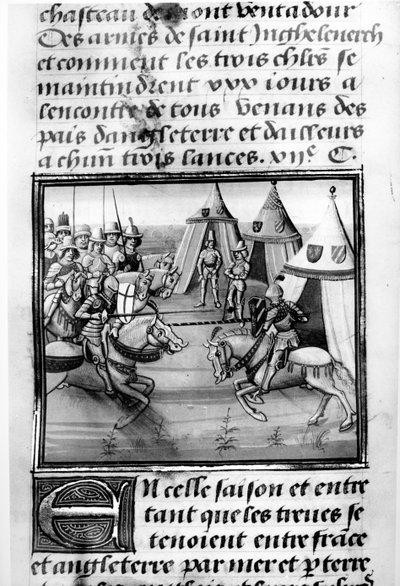 chasteau de mont ventadour
Des armes de saint JnghelevERch
et comment les trois chl͠rs se
maintindrent xxx iours a
lencontre de tous venans des
pais dangleterre et dailleurs
a chun͠ trois lances. xijᵉ C.
En celle saison et entre
tant que les treues se
tenoient entre france
et angleterre par mer et p terre